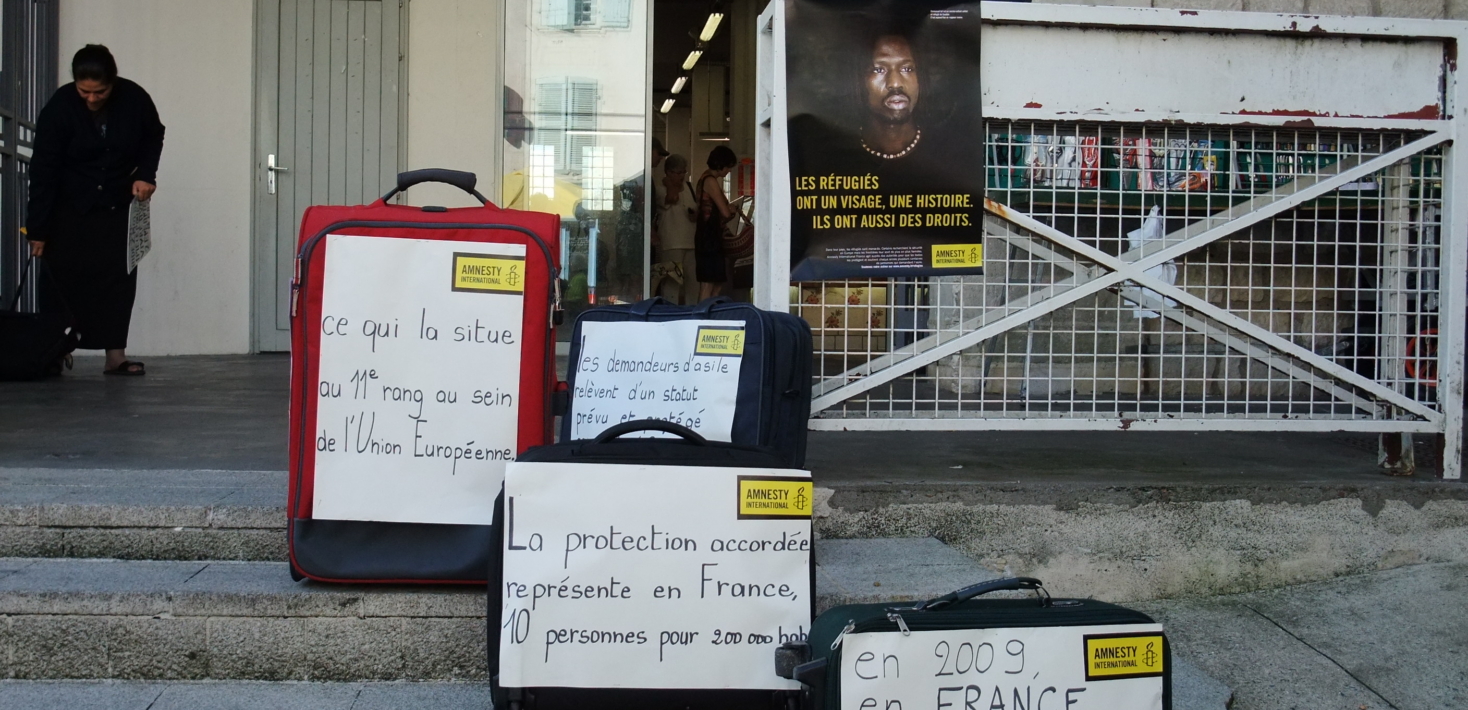 LES RÉFUGIÉS
ONT UN VISAGE, UNE HISTOIRE.
ILS ONT AUSSI DES DROITS.
AMNESTY
INTERNATIONAL
AMNESTY
INTERNATIONAL
ce qui la situe
au 11e rang au sein
de l'Union Européenne.
AMNESTY
INTERNATIONAL
les demandeurs d'asile
relèvent d'un statut
prévu et protégé
AMNESTY
INTERNATIONAL
La protection accordée
représente en France,
10 personnes pour 200 000 hab
AMNESTY
INTERNATIONAL
en 2009,
en FRANCE